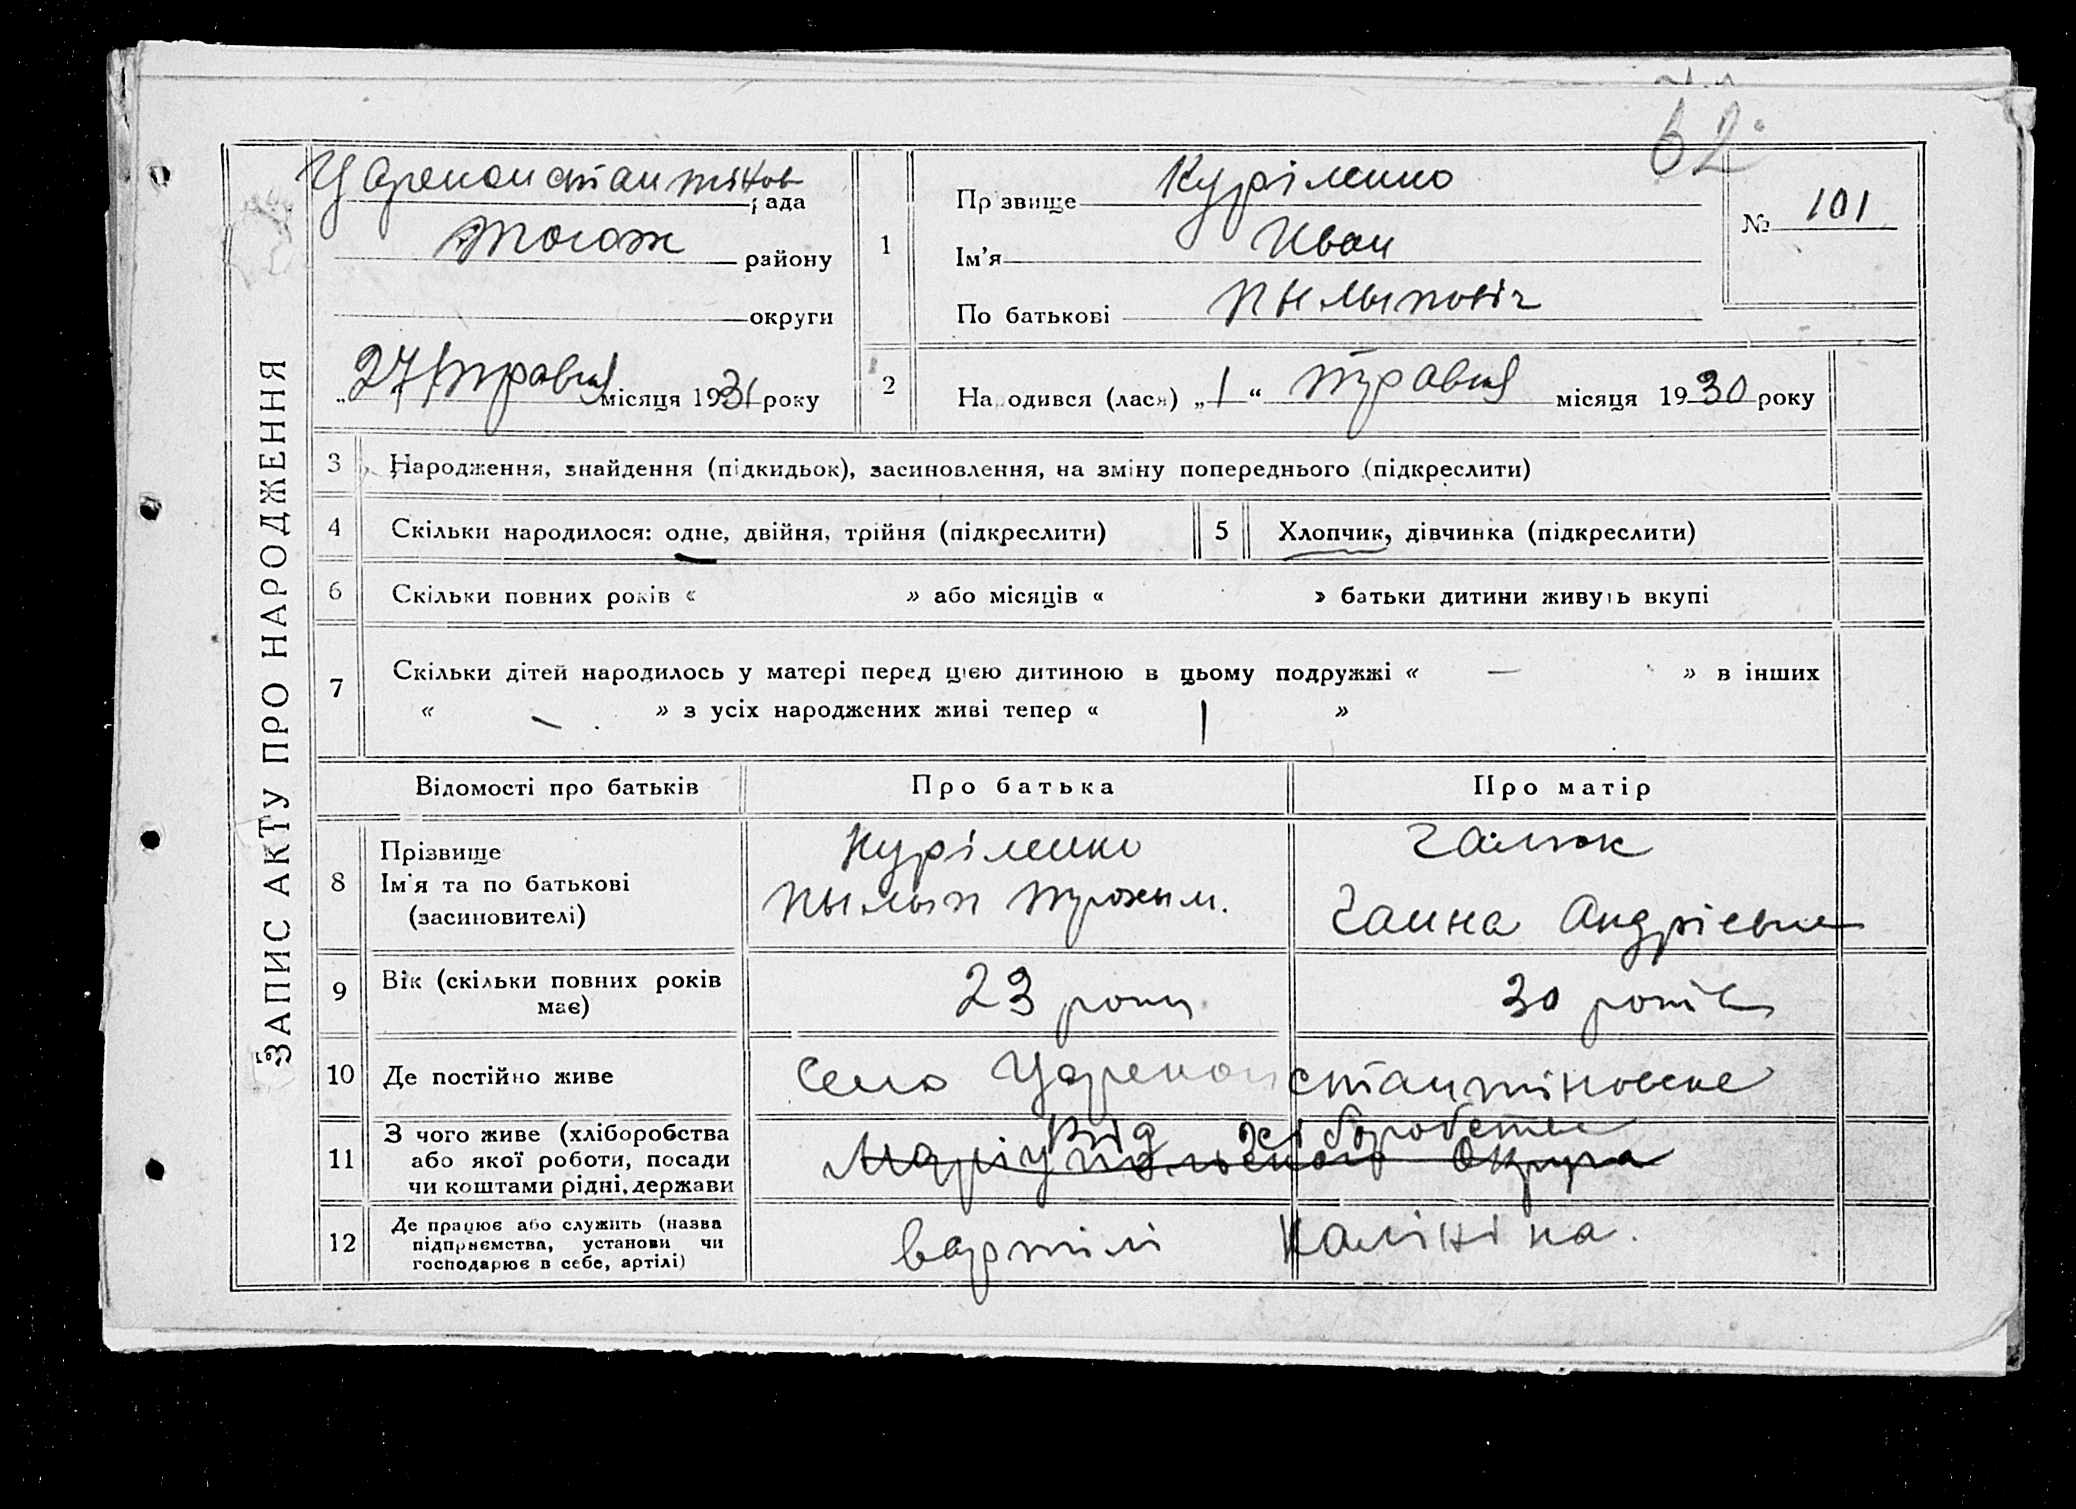 62
ЗАПИС АКТУ ПРО НАРОДЖЕННЯ
Цареконстантінов
рада
району
округи
„27 травня місяця 1931 року
№ 101
1
Прізвище Куріленко
Ім'я Иван
По батькові Пылыповіч
2
Народився (лася) „1“ травня місяця 1930 року
3 Народження, знайдення (підкидьок), засиновлення, на зміну попереднього (підкреслити)
4 Скільки народилося: одне, двійня, трійня (підкреслити)
5 Хлопчик, дівчинка (підкреслити)
6 Скільки повних років « » або місяців « » батьки дитини живуть вкупі
7 Скільки дітей народилось у матері перед цією дитиною в цьому подружжі « — » в інших
« – » з усіх народжених живі тепер « 1 »
Відомості про батьків Про батька Про матір
8 Прізвище
Ім'я та по батькові
(засиновителі)
Куріленко
Пылып Трохым.
Ганна Андрієвна
9 Вік (скільки повних років
має)
23 роки 30 років
10 Де постійно живе
село Цареконстантіновке
11 З чого живе (хліборобства
або якої роботи, посади
чи коштами рідні, держави
від хліборобства
Маріупольского Округа
12 Де працює або служить (назва
підприємства, установи чи
господарює в себе, артілі)
вартілі Калініна.